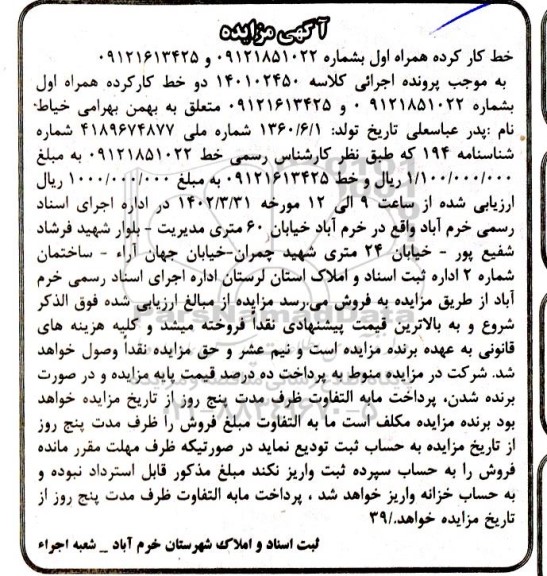 آگهی مزایده
خط کار کرده همراه اول بشماره ۰۹۱۲۱۸۵۱۰۲۲ و ۰۹۱۲۱۶۱۳۴۲۵
به موجب پرونده اجرائی کلاسه ۱۴۰۱۰۲۴۵۰ دو خط کارکرده همراه اول
بشماره ۰۹۱۲۱۸۵۱۰۲۲ و ۰۹۱۲۱۶۱۳۴۲۵ متعلق به بهمن بهرامی خیاط-
نام :پدر عباسعلی تاریخ تولد: ۱۳۶۰/۶/۱ شماره ملی ۴۱۸۹۶۷۴۸۷۷ شماره
شناسنامه ۱۹۴ که طبق نظر کارشناس رسمی خط ۰۹۱۲۱۸۵۱۰۲۲ به مبلغ
۱/۱۰۰/۰۰۰/۰۰۰ ریال و خط ۰۹۱۲۱۶۱۳۴۲۵ به مبلغ ۱۰۰۰/۰۰۰/۰۰۰ ریال
ارزیابی شده از ساعت ۹ الی ۱۲ مورخه ۱۴۰۲/۳/۳۱ در اداره اجرای اسناد
رسمی خرم آباد واقع در خرم آباد خیابان ۶۰ متری مدیریت - بلوار شهید فرشاد
شفیع پور - خیابان ۲۴ متری شهید چمران-خیابان جهان آراء - ساختمان
شماره ۲ اداره ثبت اسناد و املاک استان لرستان اداره اجرای اسناد رسمی خرم
آباد از طریق مزایده به فروش می‌رسد مزایده از مبالغ ارزیابی شده فوق الذکر
شروع و به بالاترین قیمت پیشنهادی نقدا فروخته میشد و کلیه هزینه های
قانونی به عهده برنده مزایده است و نیم عشر و حق مزایده نقداً وصول خواهد
شد. شرکت در مزایده منوط به پرداخت ده درصد قیمت پایه مزایده و در صورت
برنده شدن، پرداخت مابه التفاوت ظرف مدت پنج روز از تاریخ مزایده خواهد
بود برنده مزایده مکلف است ما به التفاوت مبلغ فروش را ظرف مدت پنج روز
از تاریخ مزایده به حساب ثبت تودیع نماید در صورتیکه ظرف مهلت مقرر مانده
فروش را به حساب سپرده ثبت واریز نکند مبلغ مذکور قابل استرداد نبوده و
به حساب خزانه واریز خواهد شد ، پرداخت مابه التفاوت ظرف مدت پنج روز از
تاریخ مزایده خواهد./۳۹
ثبت اسناد و املاک شهرستان خرم آباد _ شعبه اجراء